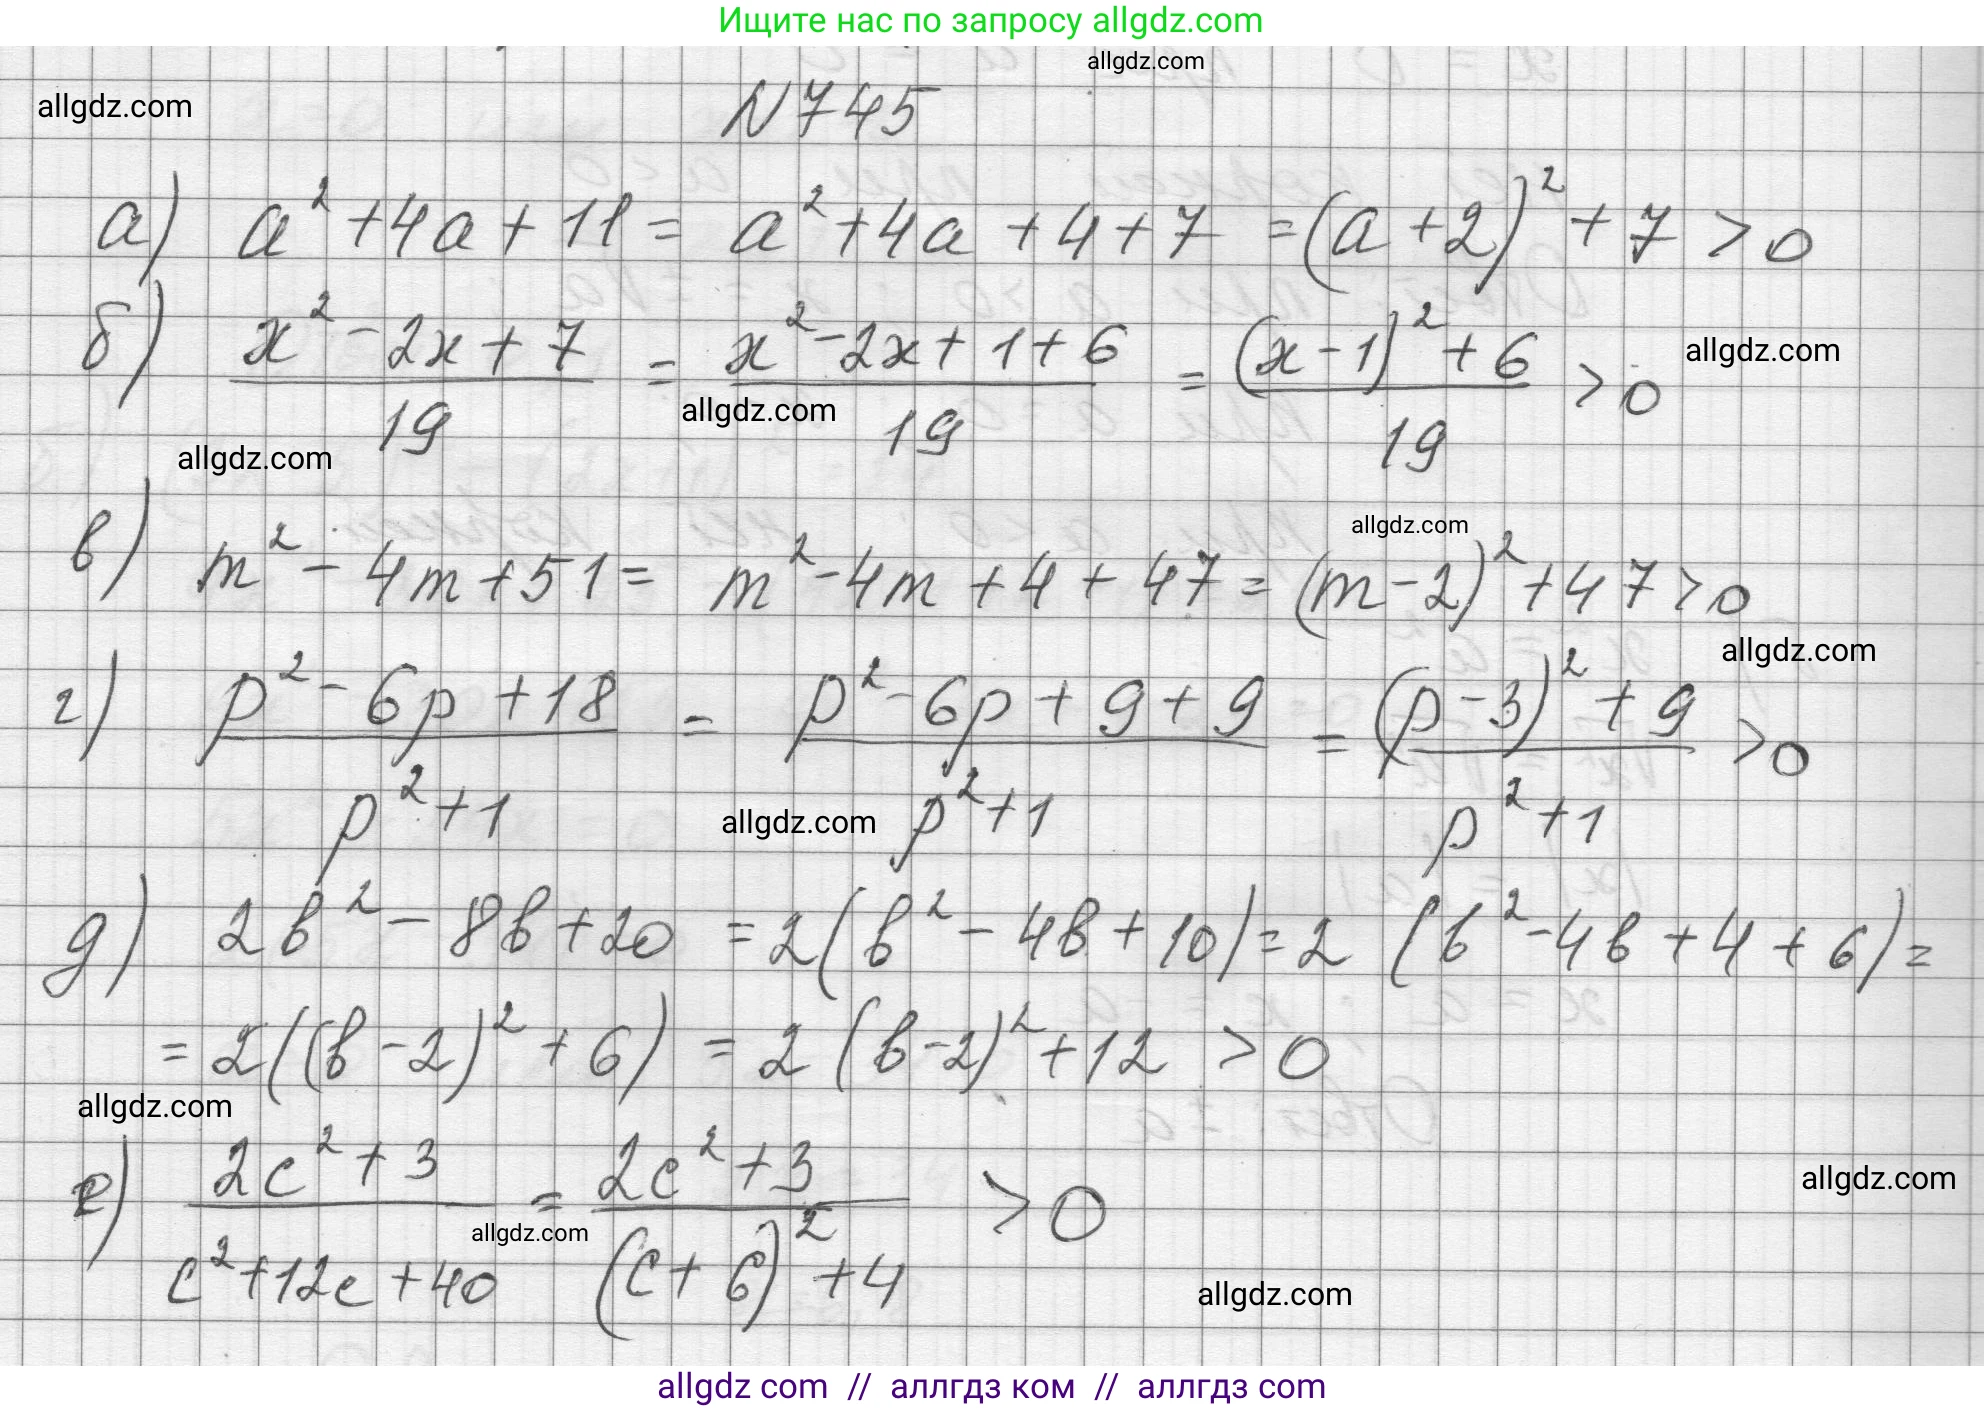 Ищите нас по запросу allgdz.com
allgdz.com
allgdz.com
N 745
а) a² + 4a + 11 = a² + 4a + 4 + 7 = (a + 2)² + 7 > 0
б) (x² - 2x + 7)/19 = (x² - 2x + 1 + 6)/19 = ((x - 1)² + 6)/19 > 0
allgdz.com
allgdz.com
allgdz.com
allgdz.com
в) m² - 4m + 51 = m² - 4m + 4 + 47 = (m - 2)² + 47 > 0
allgdz.com
г) (p² - 6p + 18)/(p² + 1) = (p² - 6p + 9 + 9)/(p² + 1) = ((p - 3)² + 9)/(p² + 1) > 0
allgdz.com
д) 2b² - 8b + 20 = 2(b² - 4b + 10) = 2 (b² - 4b + 4 + 6) =
= 2((b - 2)² + 6) = 2 (b - 2)² + 12 > 0
allgdz.com
е) (2c² + 3)/(c² + 12c + 40) = (2c² + 3)/((c + 6)² + 4) > 0
allgdz.com
allgdz.com
allgdz.com
allgdz com // аллгдз ком // аллгдз com